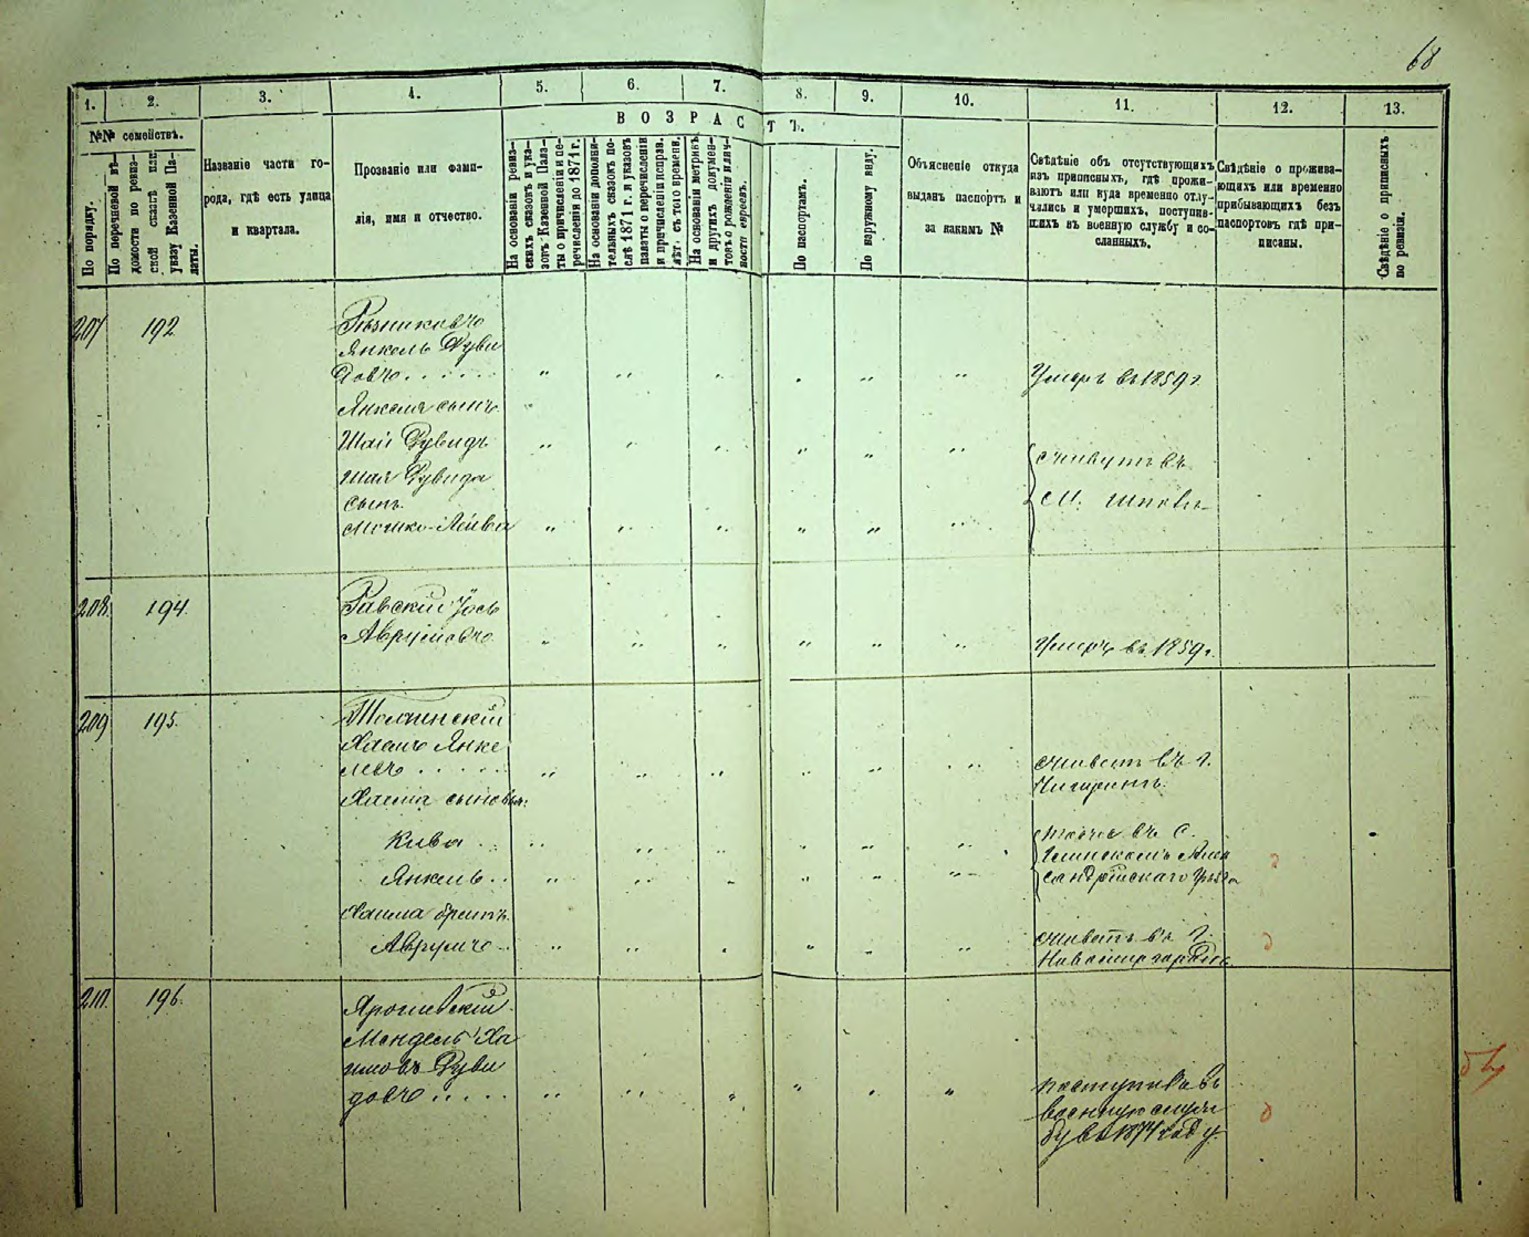 68
1. 2. 3. 4. 5. 6. 7. 8. 9. 10. 11. 12. 13.
№№ семействъ.
По порядку.
По перечневой вѣ-
домости по ревиз-
ской сказкѣ или
указу Казенной Па-
латы.
Названіе части го-
рода, гдѣ есть улица
и квартала.
Прозваніе или фами-
лія, имя и отчество.
ВОЗРАСТЪ.
На основаніи ревиз-
скихъ сказокъ и ука-
зовъ Казенной Пала-
ты о причисленіи и пе-
речисленіи до 1871 г.
На основаніи дополни-
тельныхъ сказокъ по-
слѣ 1871 г. и указовъ
палаты о перечисленіи
и причисленіи исправ.
лѣт. съ того времени.
На основаніи метрикъ
и другихъ докумен-
товъ о рожденіи или ч-
ности евреевъ.
По паспортамъ.
По наружному виду.
Объясненіе откуда
выданъ паспортъ и
за какимъ №
Свѣдѣніе объ отсутствующихъ
изъ приписныхъ, гдѣ прожи-
ваютъ или куда временно отлу-
чились и умершихъ, поступив-
шихъ въ военную службу и со-
сланныхъ.
Свѣдѣніе о прожива-
ющихъ или временно
прибывающихъ безъ
паспортовъ гдѣ при-
писаны.
Свѣдѣніе о приписныхъ
по ревизіи.
207 192
Резниковъ
Янкель Дуви
довъ
Умеръ въ 1859 г.
Янкеля сынъ
Шаи Дувидъ
Шая Дувида
сынъ
Мошко-Лейба
живутъ въ
М. Шпола
208. 194.
Равский Іось
Аврумовъ
Умеръ въ 1859 г.
209 195.
Толчинский
Хаимъ Янке
левъ
живетъ въ г.
Чигиринѣ.
Хаима сыновья:
Кива
Янкель
тоже въ с.
Глинскомъ Алек
сандрійскаго уѣзда
Хаима братъ
Аврумъ
живетъ въ г.
Новомиргородѣ
210. 196.
Ярошевский
Мендель Ха
имовъ Дуви
довъ
поступилъ въ
военную служ
бу въ 1874 году.